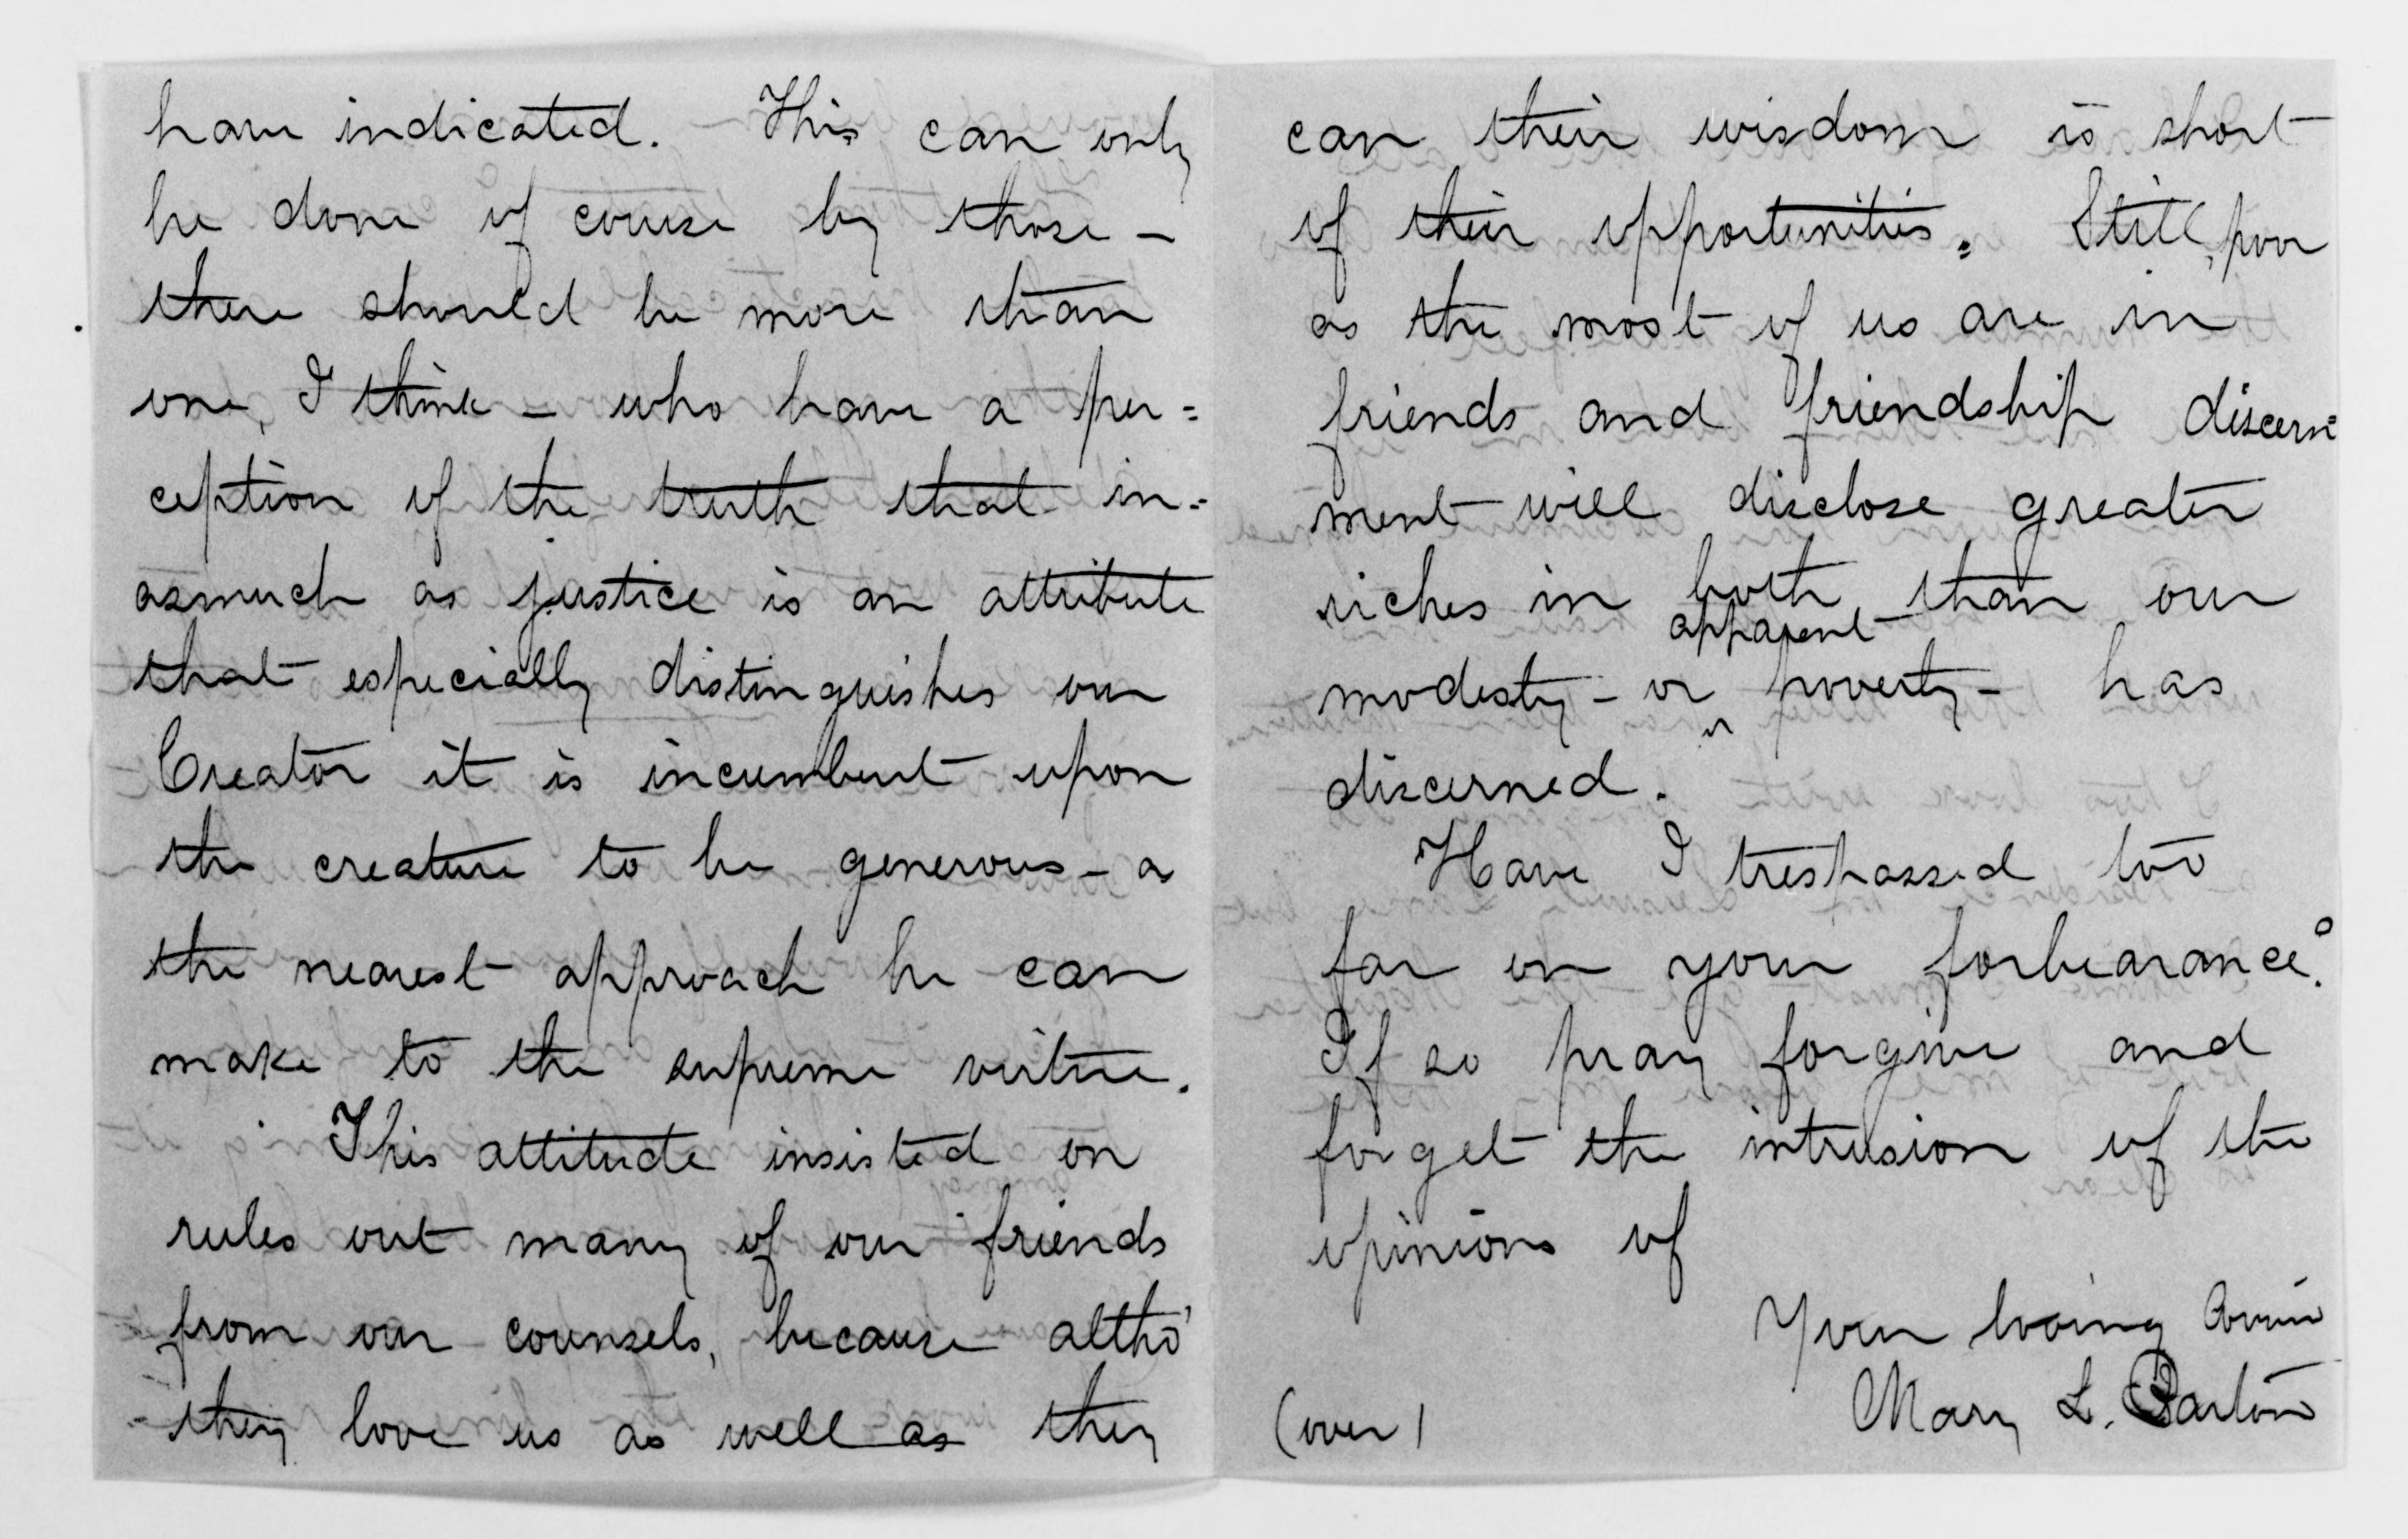 have indicated. This can only
be done of course by those -
there should be more than
one, I think - who have a per=
ception of the truth that in=
asmuch as justice is an attribute
that especially distinguishes our
Creator it is incumbent upon
the creature to be generous - as
the nearest approach he can
make to the supreme virtue.
This attitude insisted on
rules out many of our friends
from our counsels, because altho'
they love us as well as they
can their wisdom is short
of their opportunities. Still, poor
as the most of us are in
friends and friendship discern=
ment will disclose greater
riches in both, than our
apparent
modesty - or ^ poverty - has
discerned.
Have I trespassed too
far on your forbearance?
If so pray forgive and
forget the intrusion of the
opinions of
Your loving Cousin
Mary L. Barton
(over)